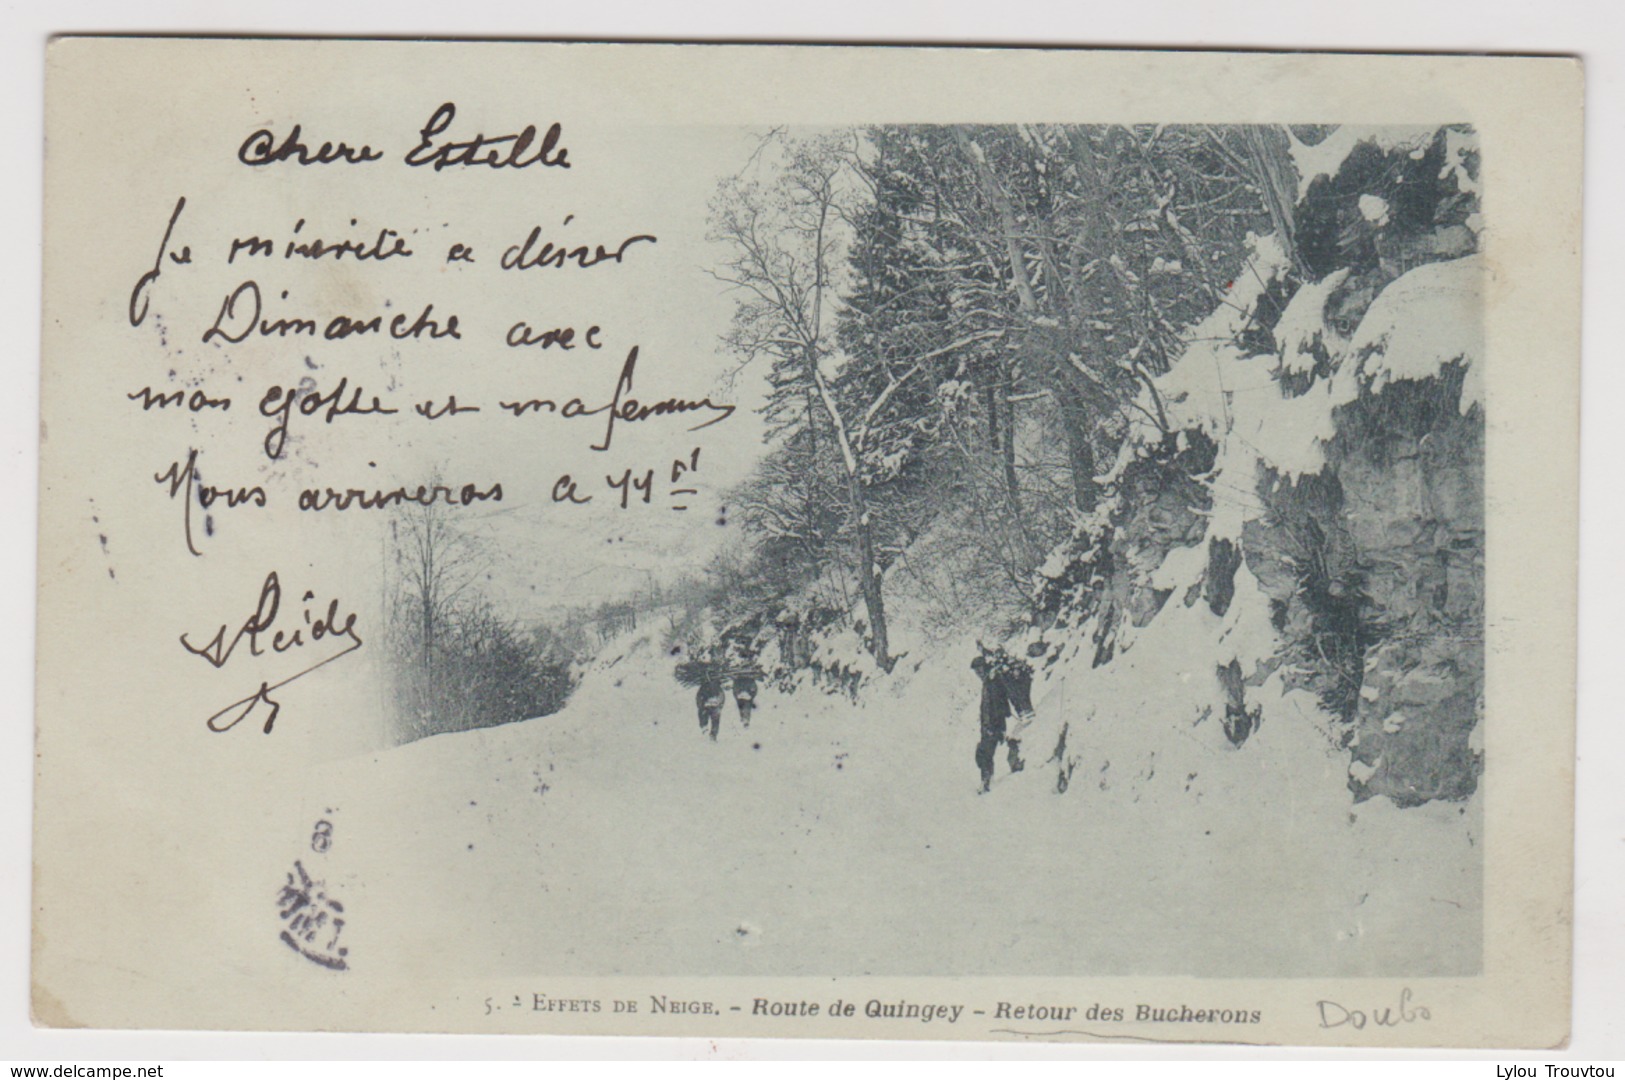 Chere Estelle
Je m'invite a dîner
Dimanche avec
mon gosse et ma femme
Nous arriverons a 11 h
5. - EFFETS DE NEIGE. - Route de Quingey - Retour des Bucherons
Doubs
www.delcampe.net
Lylou Trouvtou